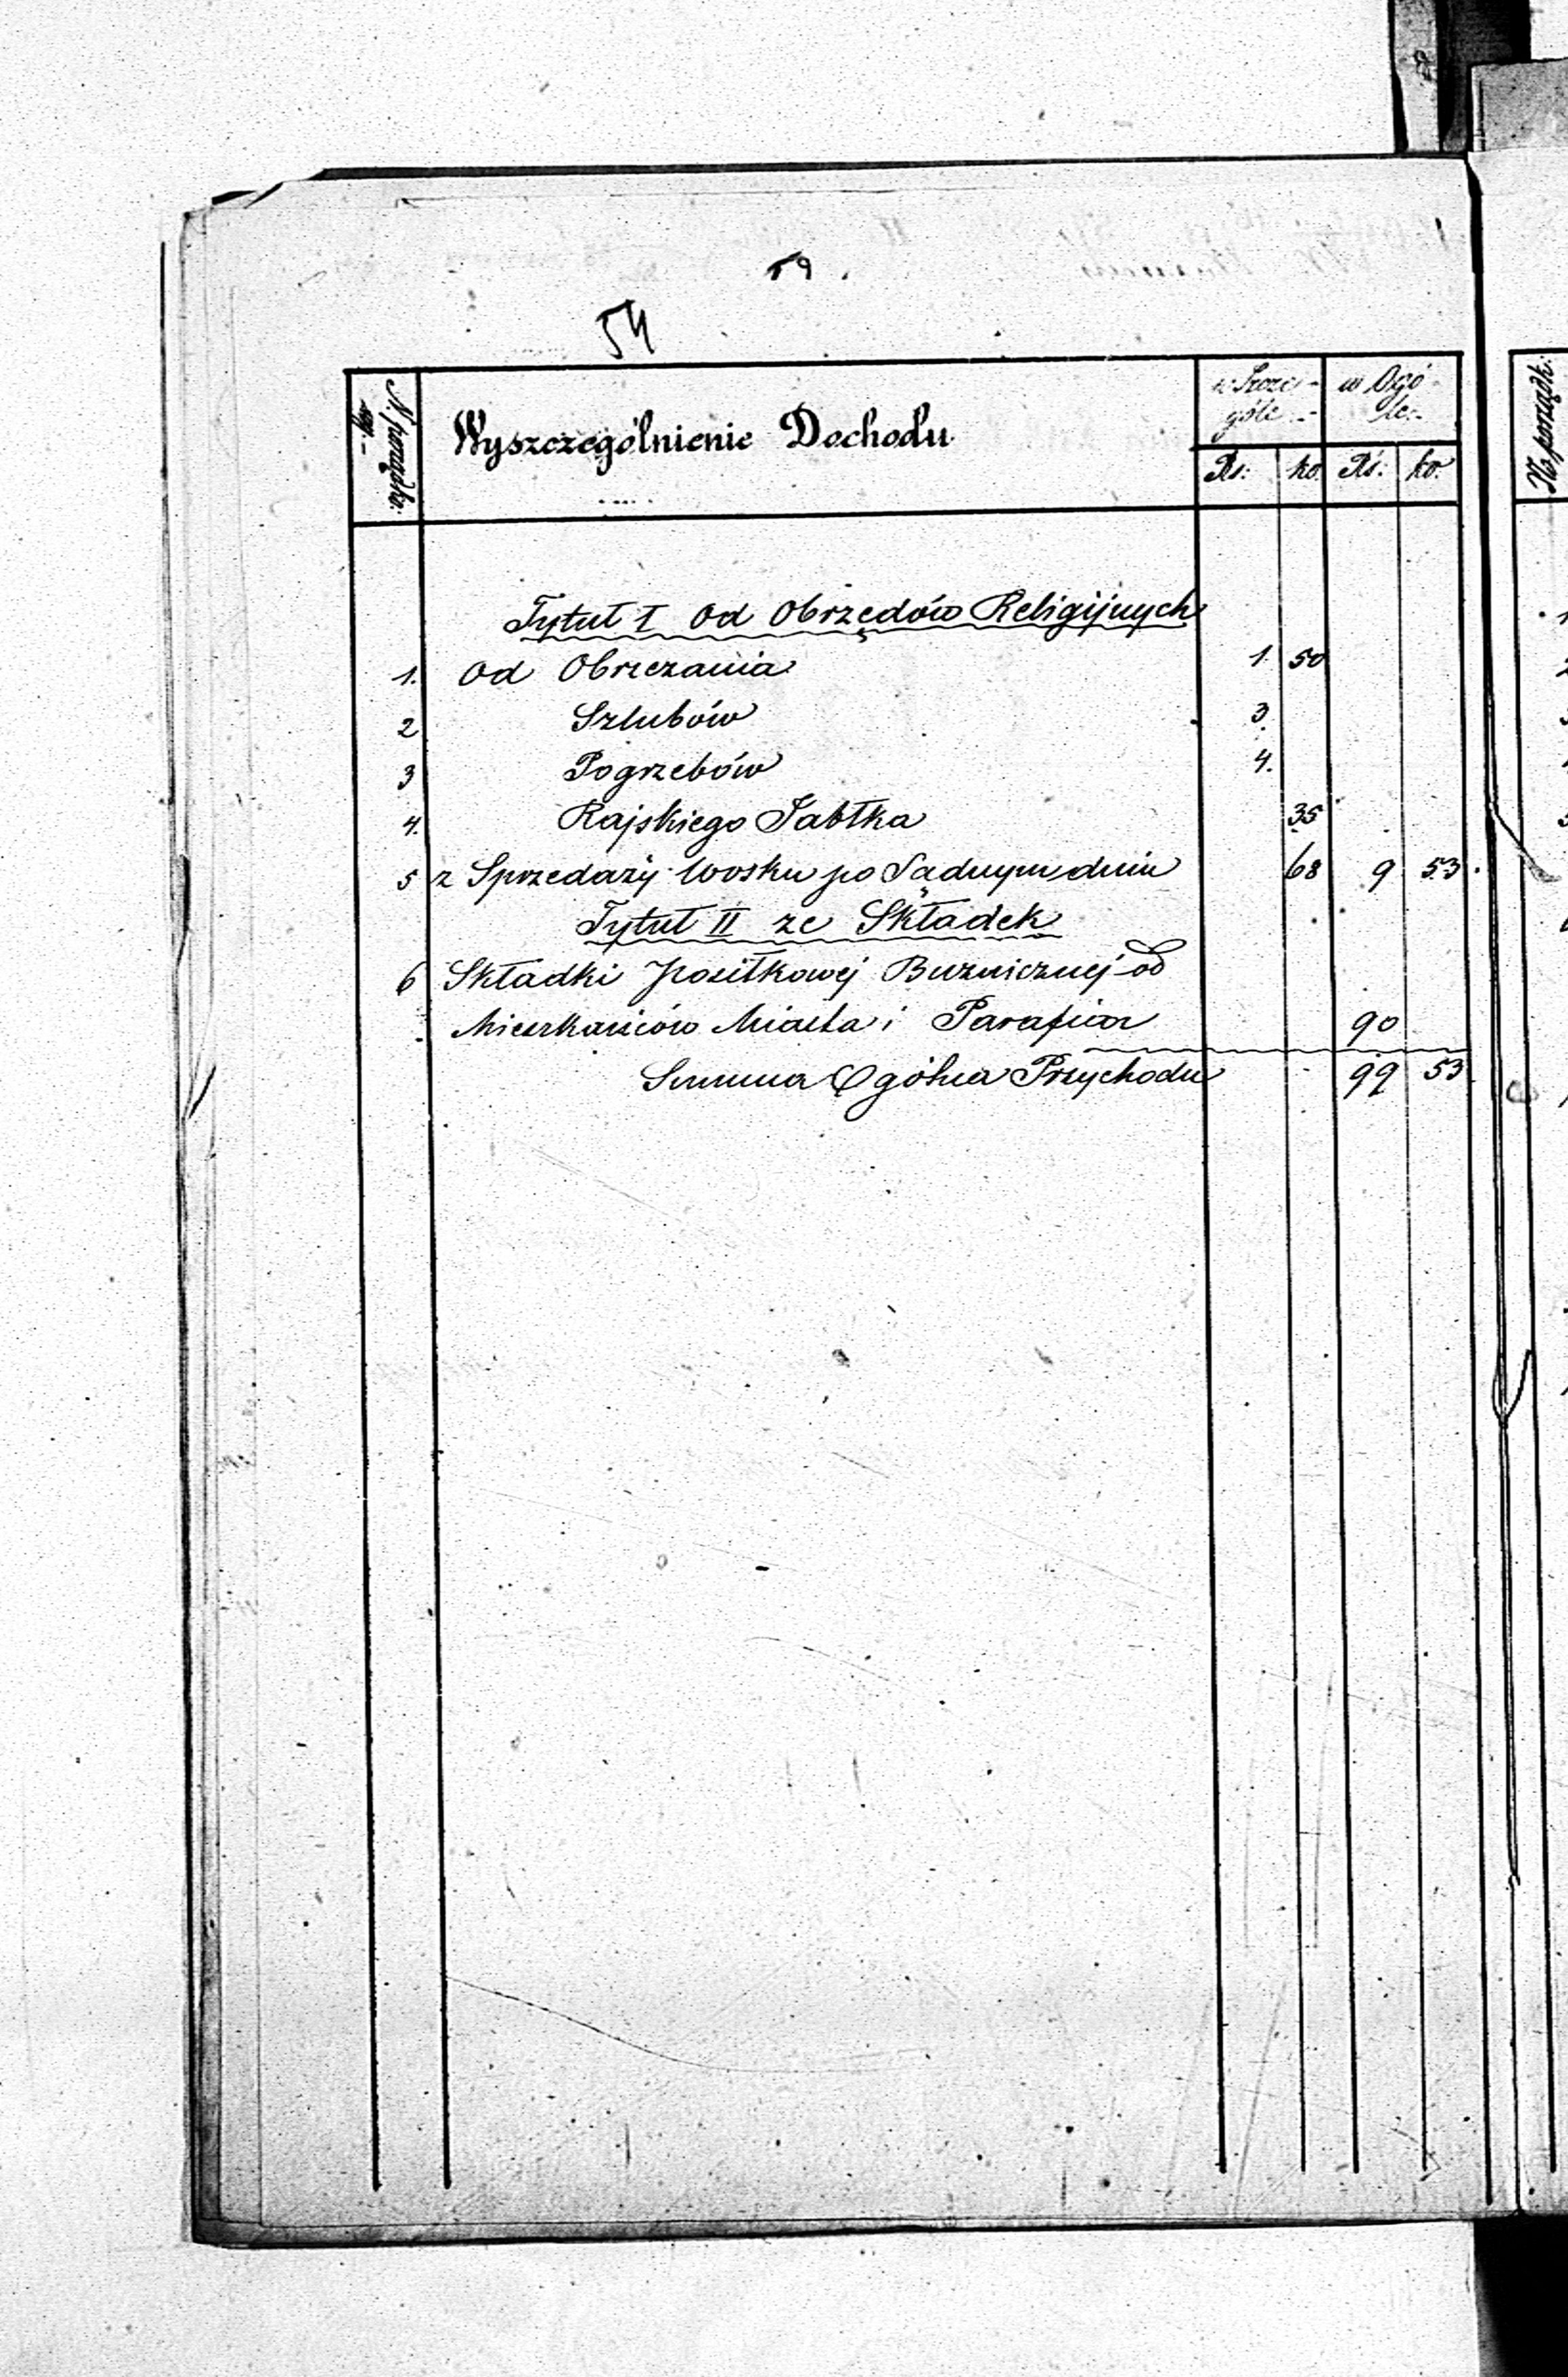 59.
54
N. porządko-
wy.-
Wyszczególnienie Dochodu
w Szcze-
góle.-
w Ogó-
le.-
Rs: ko. Rs: ko.
Tytuł I Od Obrzędów Religijnych
1. Od Obrzezania 1. 50
2 Szlubów 3.
3 Pogrzebów 4.
4. Rajskiego Jabłka 35
5 z Sprzedaży Wosku po Sądnym dniu 68 9 53.
Tytuł II ze Składek
6 Składki posiłkowej Buznicznej od
Mieszkańców Miasta i Parafian 90
Summa Ogólna Przychodu 99 53
№ porządk: